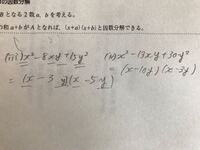 となる2数a, bを考える。
の和a+bがAとなれば、(x+a)(x+b)と因数分解できる。
(iii) x²-8xy+15y²
=(x-3y)(x-5y)
(iv) x²-13xy+30y²
=(x-10y)(x-3y)